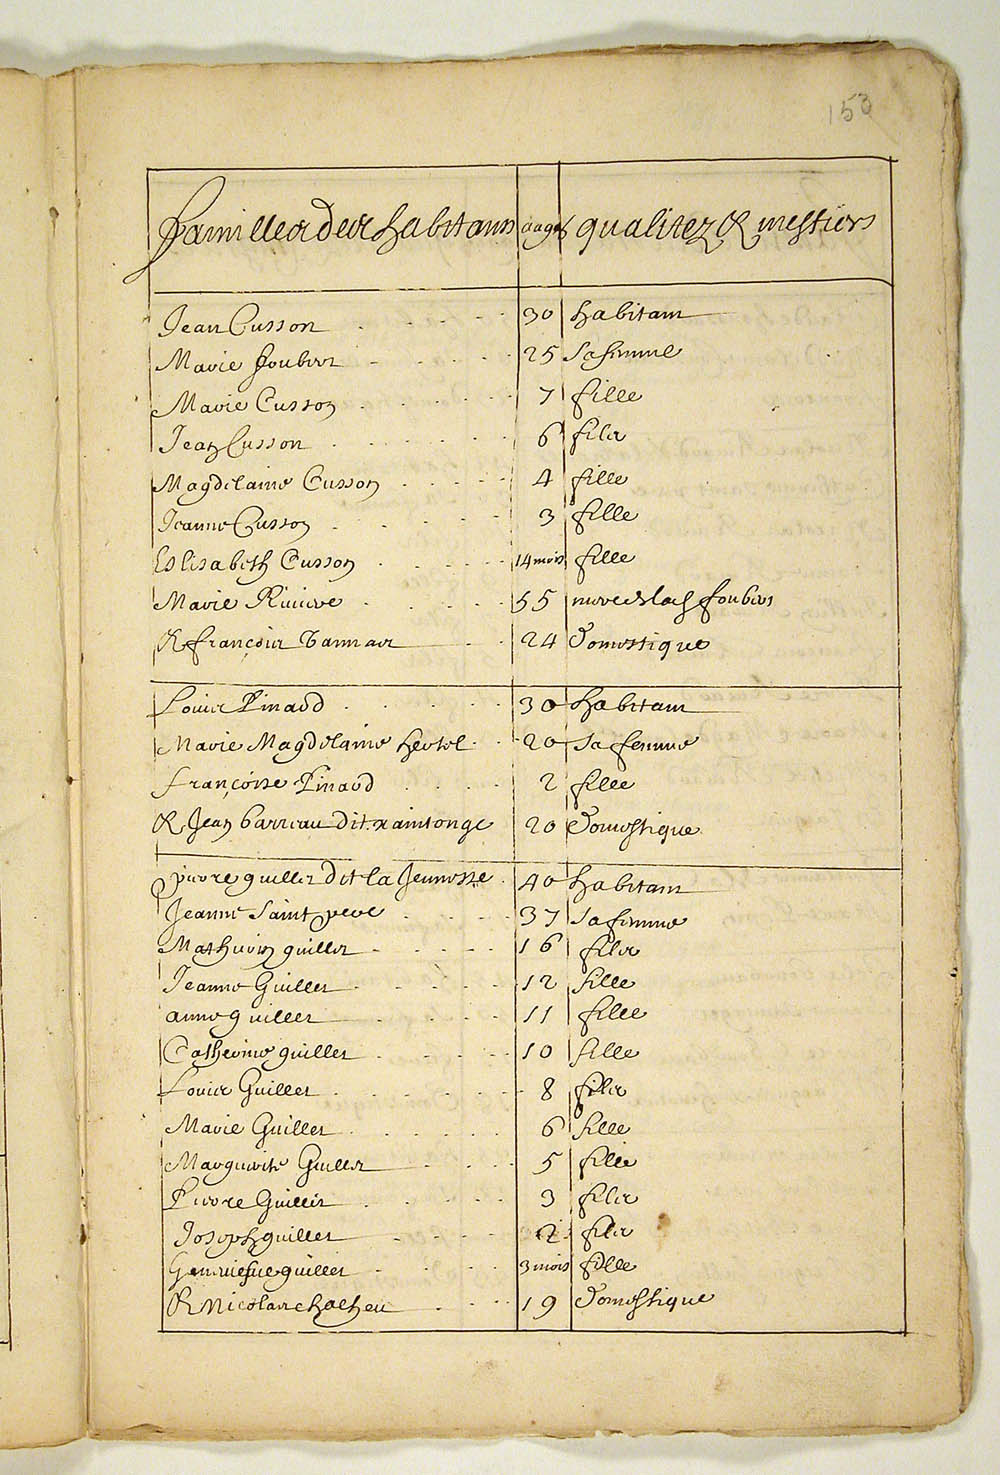 153
familles des habitans aages qualitez & mestiers
Jean Cusson 30 habitam
Marie foubert 25 sa femme
Marie Cusson 7 fille
Jean Cusson 6 fils
Magdelaine Cusson 4 fille
Jeanne Cusson 3 fille
Eslisabeth Cusson 14 mois fille
Marie Riviere 55 mere foubert
& françois 24 domestique
Louis Pinard 30 habitam
Marie Magdelaine hertel 20 sa femme
françoise Pinard 2 fille
& Jean barreau dit xaintonge 20 domestique
pierre guillet dit la Jeunesse 40 habitam
Jeanne Saint pere 37 sa femme
Mathurin guillet 16 fils
Jeanne Guillet 12 fille
anne guillet 11 fille
Catherine guillet 10 fille
Louis Guillet 8 fils
Marie Guillet 6 fille
Marguerite Guillet 5 fille
Pierre Guillet 3 fils
Joseph guillet 2 fils
Geneviefue guillet 3 mois fille
& Nicolas chacheu 19 domestique